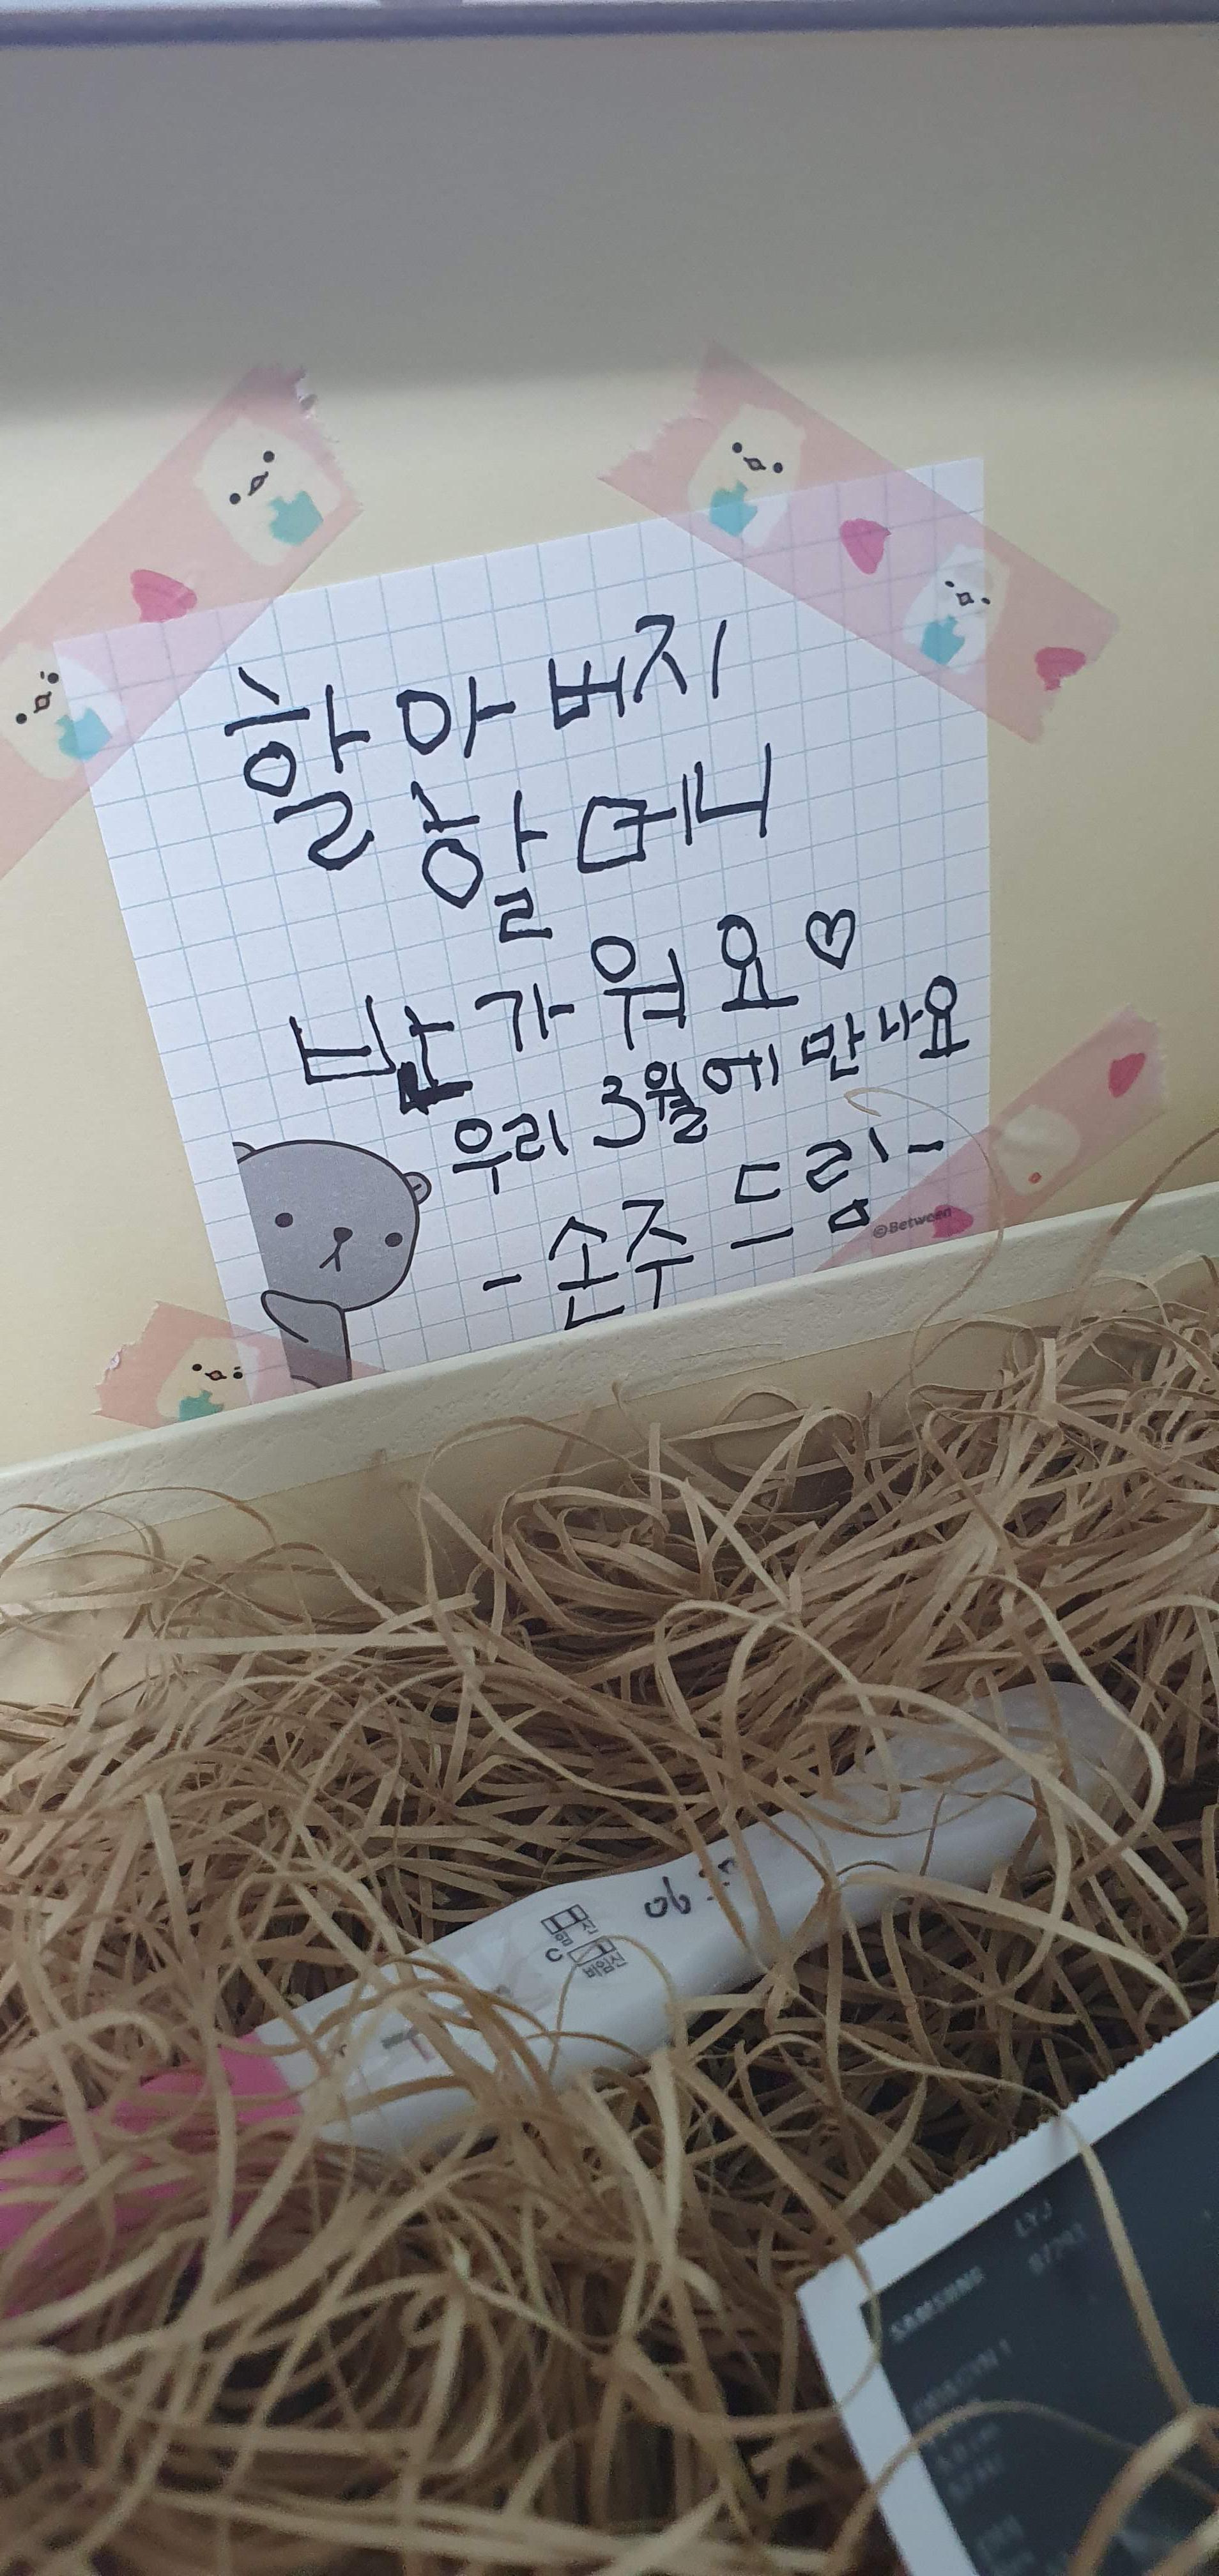 할아버지
할머니
반가워요♡
우리 3월에 만나요
- 손주 드림 -
©Between
임신
C
비임신
SAMSUNG
LYJ